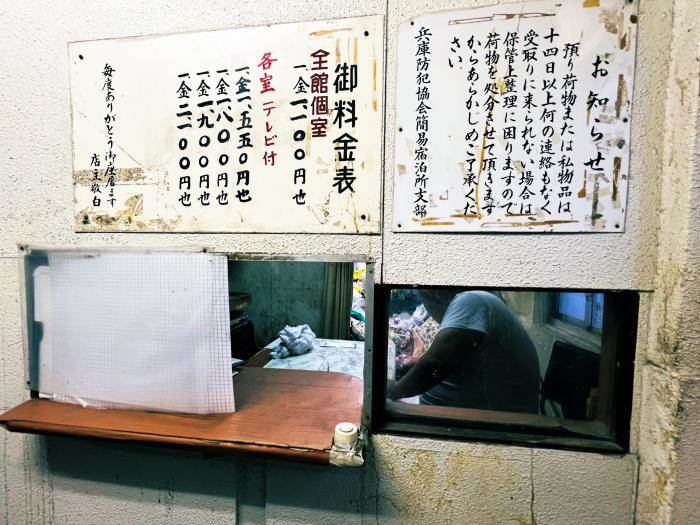 お知らせ
預り荷物または私物品は
十四日以上何の連絡もなく
受取りに来られない場合は、
保管上整理に困りますので
荷物を処分させて頂きます
からあらかじめご了承くだ
さい。
兵庫防犯協会簡易宿泊所支部
御料金表
全館個室
一、金一一〇〇円也
各室テレビ付
一、金一五五〇円也
一、金一八〇〇円也
一、金一九〇〇円也
一、金二一〇〇円也
毎度ありがとう御座居ます
店主敬白